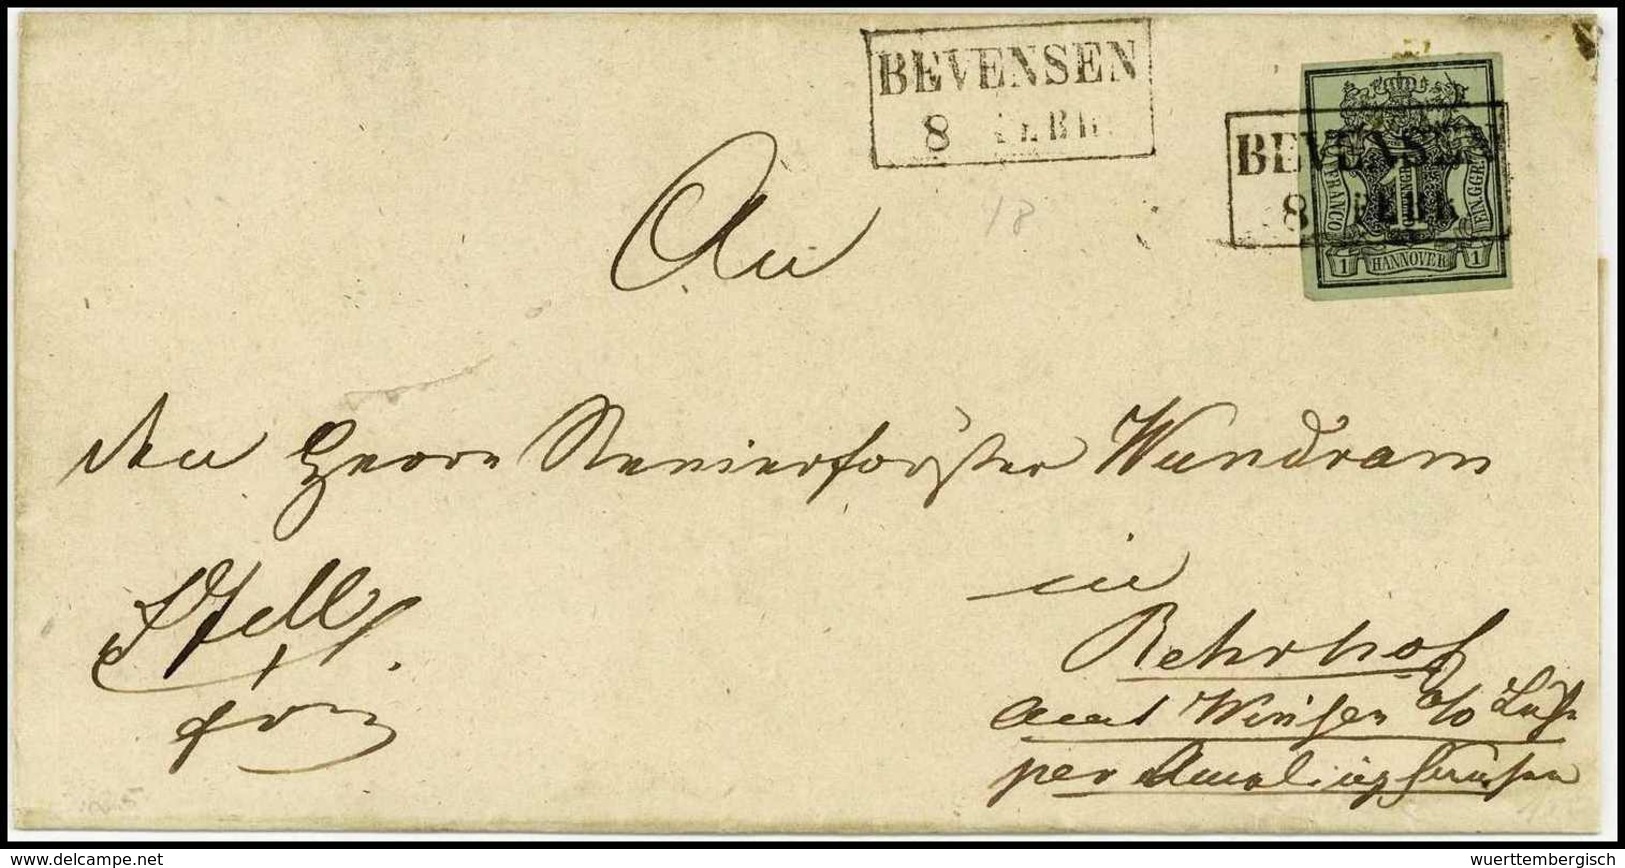 BEVENSEN
8 FEBR.
BEVENSEN
8 FEBR
FRANCO
1
EIN GGR
1 HANNOVER 1
18
An
den Herrn Revierförster Wundram
in
Rehrhof
Amt Winsen a/d Luhe
per Amelinghausen
frei
www.wuerttembergisch
delcampe.net